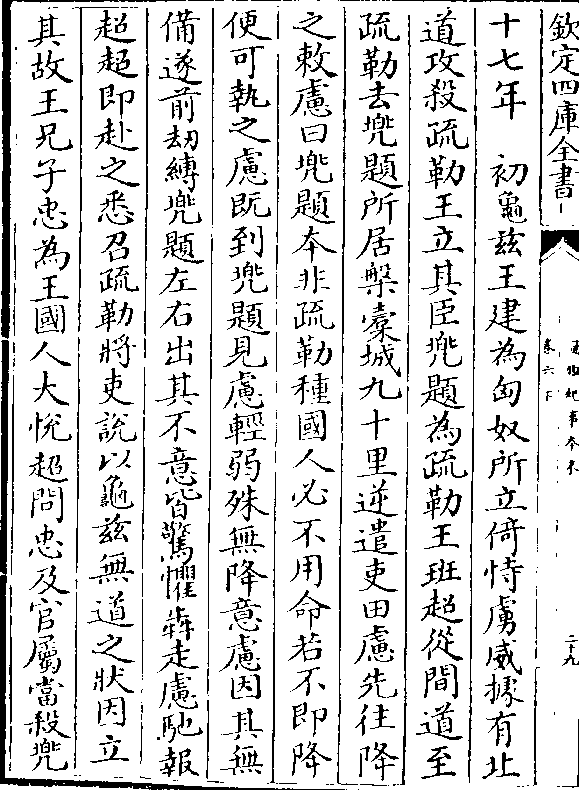 欽定四庫全書
通鑑紀事本末
卷六下
二十九
十七年　初龜兹王建為匈奴所立倚恃虜威據有北
道攻殺疏勒王立其臣兠題為疏勒王班超從間道至
疏勒去兠題所居槃橐城九十里逆遣吏田慮先往降
之敕慮曰兠題本非疏勒種國人必不用命若不即降
便可執之慮既到兠題見慮輕弱殊無降意慮因其無
備遂前劫縛兠題左右出其不意皆驚懼犇走慮馳報
超超即赴之悉召疏勒將吏說以龜兹無道之狀因立
其故王兄子忠為王國人大悅超問忠及官屬當殺兠